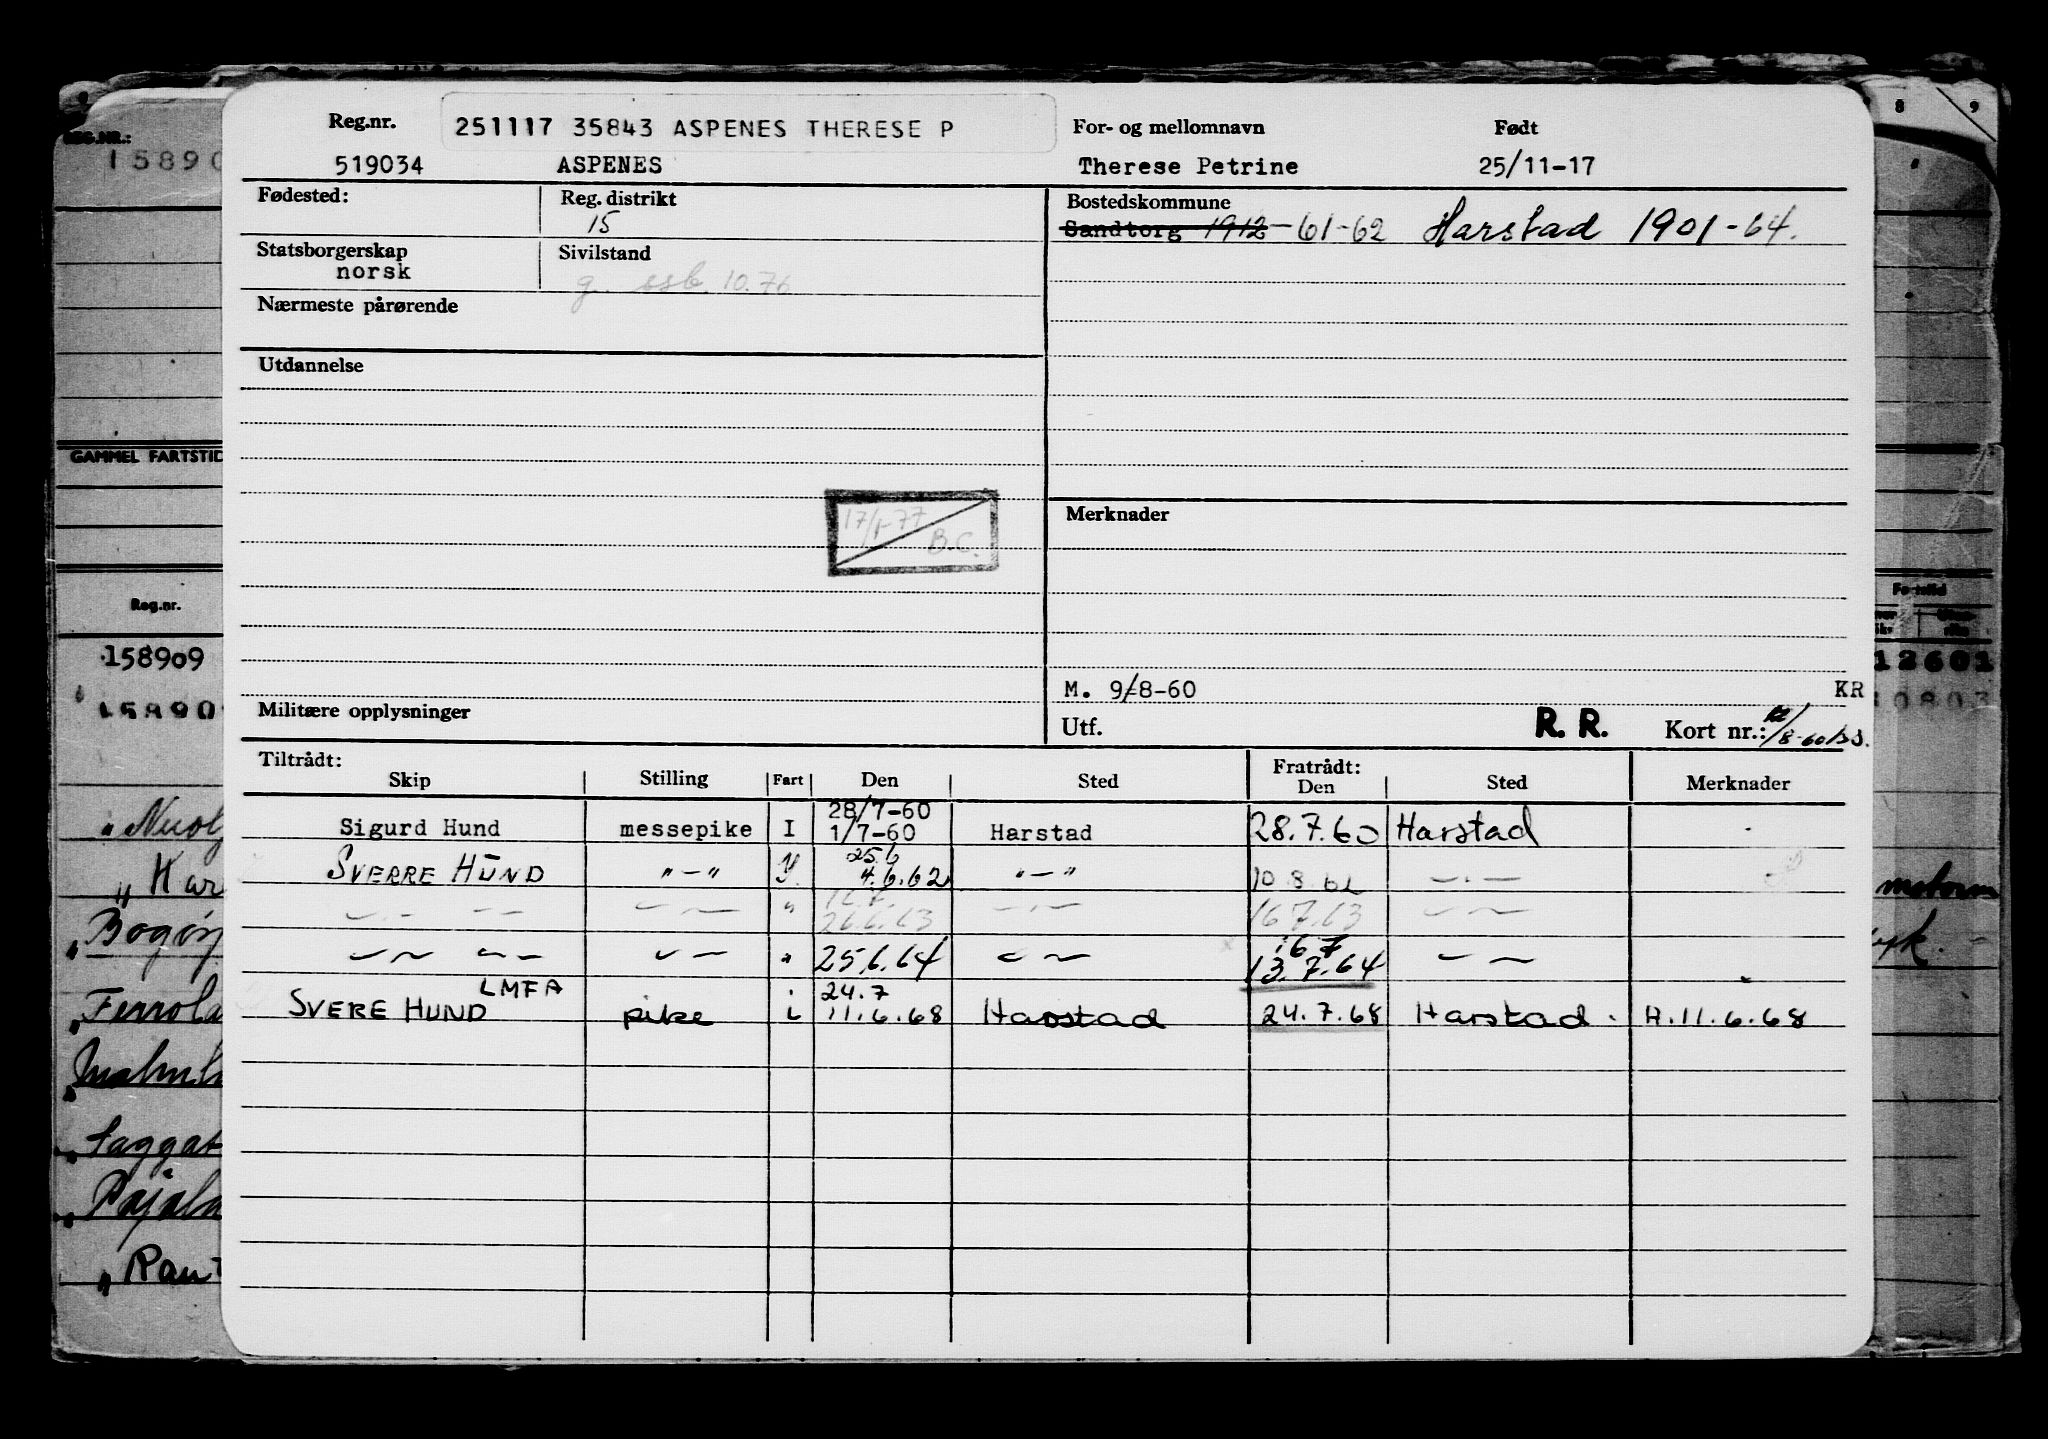 Reg.nr. 251117 35843 ASPENES THERESE P For- og mellomnavn Født
519034 ASPENES Therese Petrine 25/11-17
Fødested: Reg. distrikt Bostedskommune
15 Sandtorg 1912 - 61-62 Harstad 1901-64.
Statsborgerskap Sivilstand
norsk g. ssb. 10.76
Nærmeste pårørende
Utdannelse
17/1-77 B.C.
Merknader
M. 9/-8-60 KR
Militære opplysninger Utf. R. R. Kort nr.:
Tiltrådt: Fratrådt:
Skip Stilling Fart Den Sted Den Sted Merknader
28/7-60
Sigurd Hund messepike I 1/7-60 Harstad 28.7.60 Harstad
25.6
SVERRE HUND "-" 4.6.62 "-" 10.8.62
" 16.7.63
16 7
" 25.6.64 13.7.64
LMFA 24.7
SVERE HUND pike i 11.6.68 Harstad 24.7.68 Harstad. H.11.6.68
REG.NR.:
15890
GAMMEL FARTSTID
Reg.nr.
158909
15890
Bogøy
Saggat
8 9
12601
10803